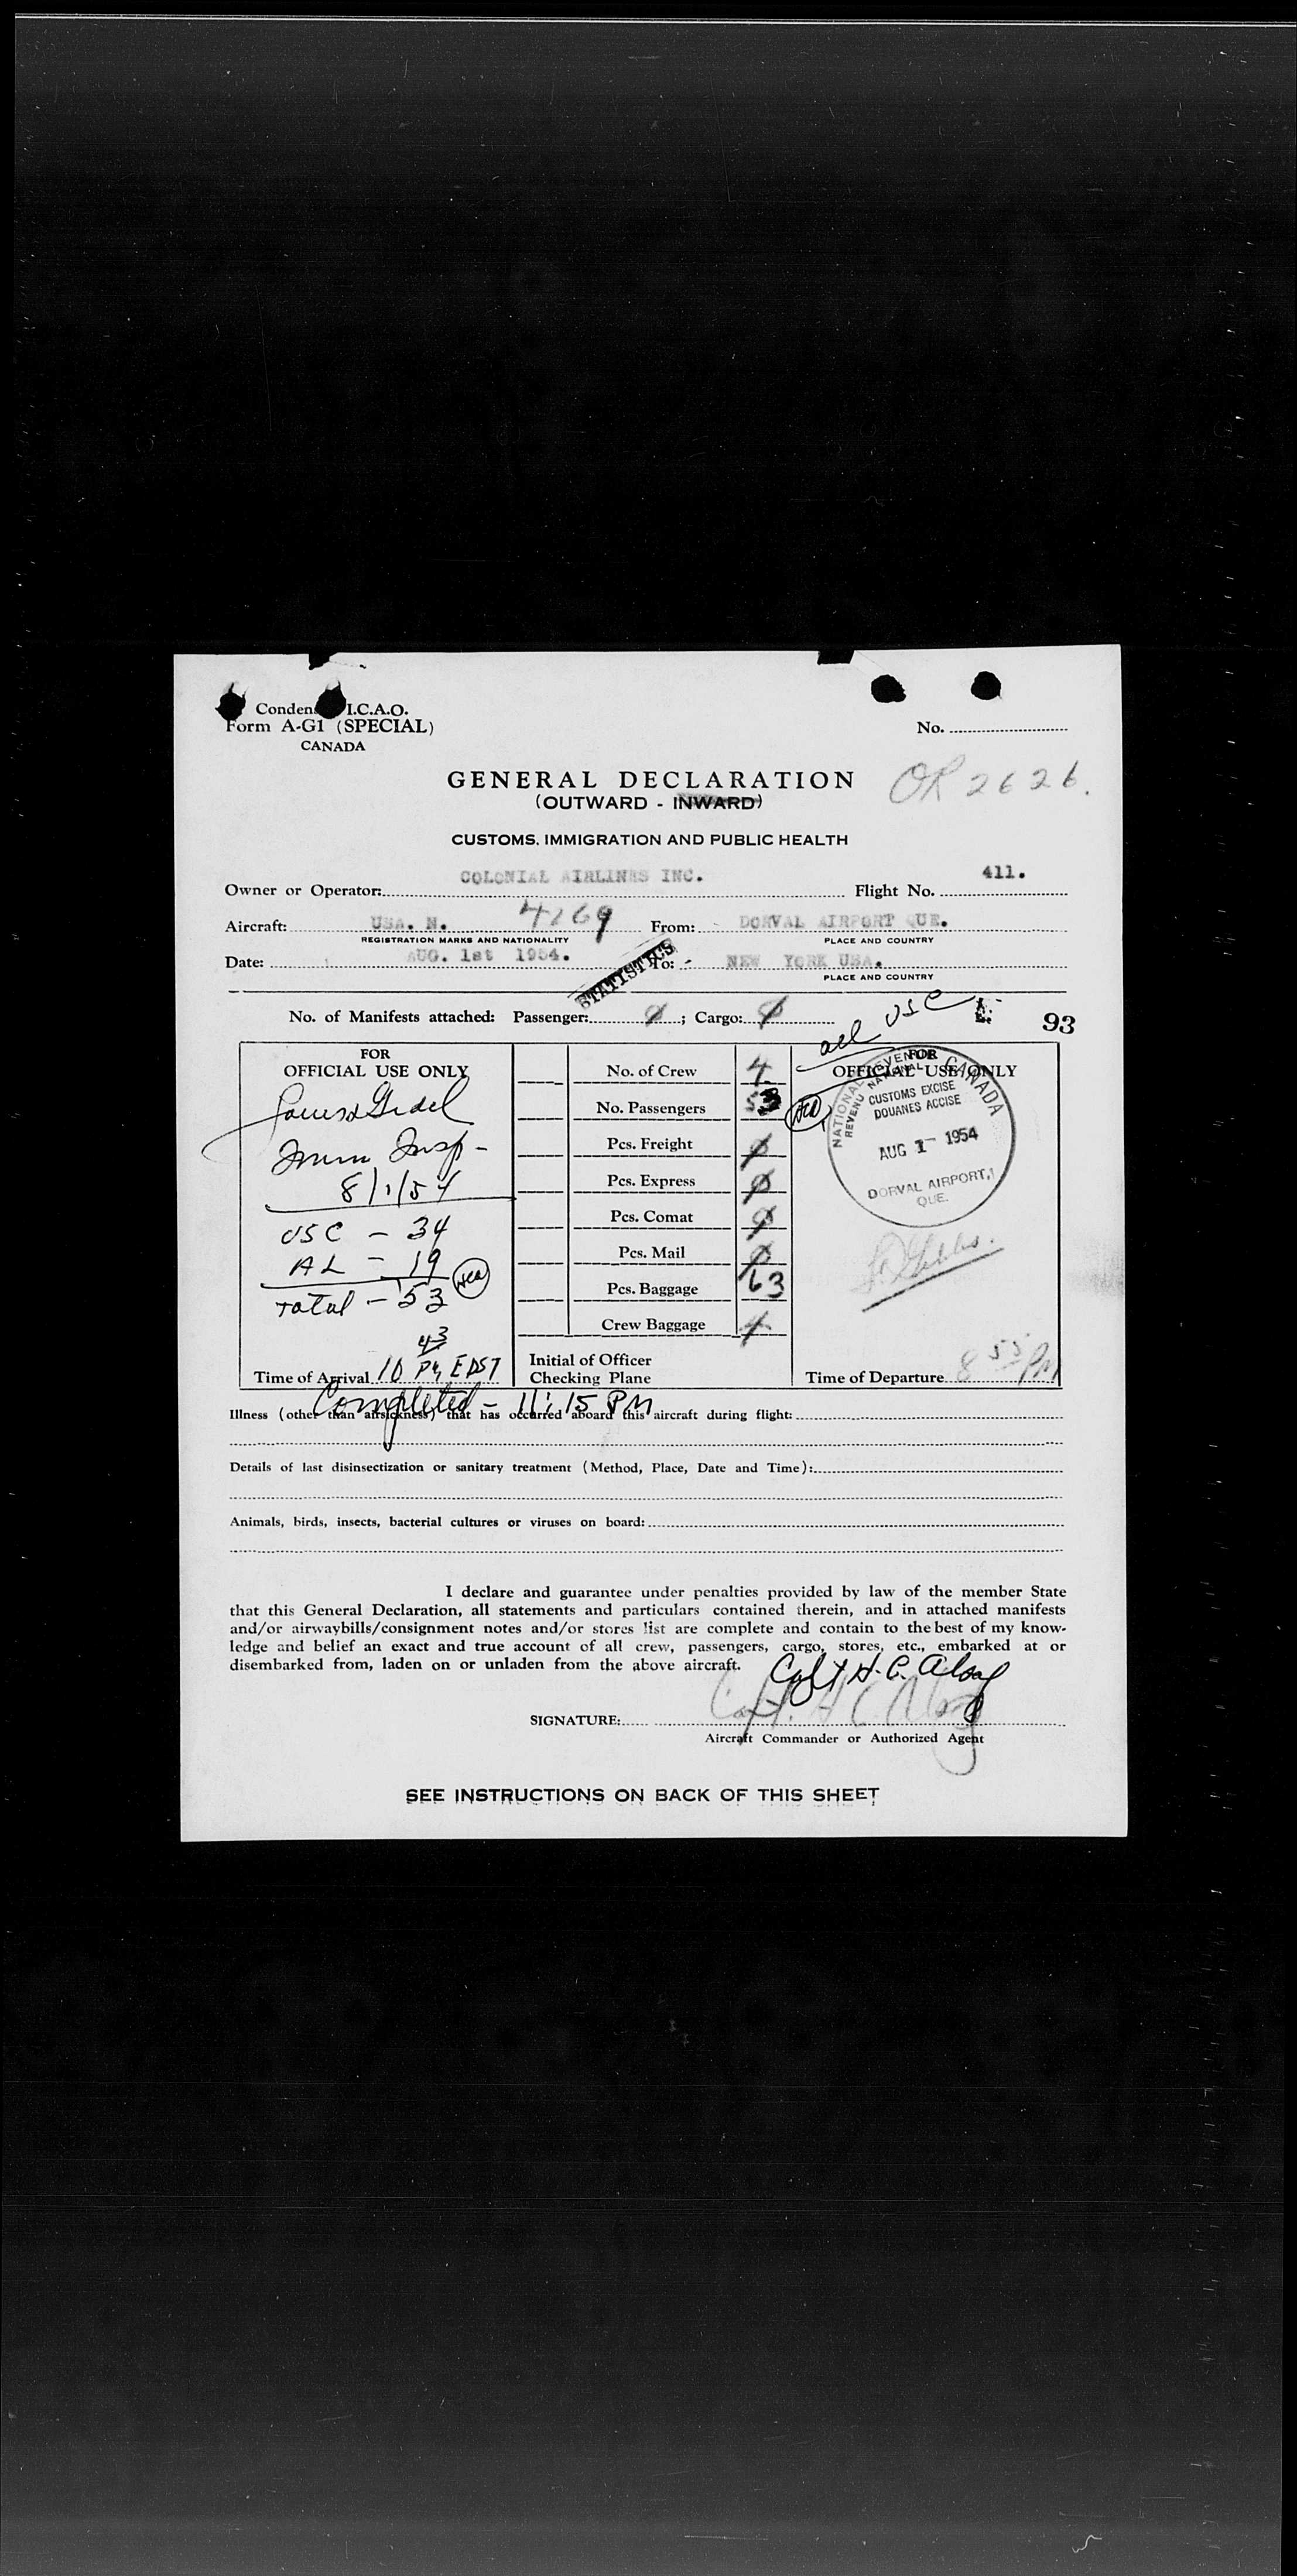 Condens I.C.A.O.
Form A-G1 (SPECIAL)
CANADA
No.
OR 2626.
GENERAL DECLARATION
(OUTWARD - INWARD)
CUSTOMS, IMMIGRATION AND PUBLIC HEALTH
Owner or Operator: COLONIAL AIRLINES INC. Flight No. 411.
Aircraft: USA. N. 4269 From: DORVAL AIRPORT QUE.
REGISTRATION MARKS AND NATIONALITY PLACE AND COUNTRY
Date: AUG. 1st 1954. To: - NEW YORK USA.
PLACE AND COUNTRY
STATISTICS
No. of Manifests attached: Passenger: 0; Cargo: 0
all USC
93
FOR
OFFICIAL USE ONLY
Imm Insp -
8/1/54
USC - 34
AL - 19
Total - 53
43
Time of Arrival 10 PM EDST
Completed - 11:15 PM
No. of Crew 4
No. Passengers 53
Pcs. Freight 0
Pcs. Express 0
Pcs. Comat 0
Pcs. Mail 0
Pcs. Baggage 63
Crew Baggage 4
Initial of Officer
Checking Plane
FOR
OFFICIAL USE ONLY
NATIONAL REVENUE CANADA
REVENU NATIONAL
CUSTOMS EXCISE
DOUANES ACCISE
AUG 1 - 1954
DORVAL AIRPORT,
QUE.
Time of Departure 8 55 PM
Illness (other than airsickness) that has occurred aboard this aircraft during flight:
Details of last disinsectization or sanitary treatment (Method, Place, Date and Time):
Animals, birds, insects, bacterial cultures or viruses on board:
I declare and guarantee under penalties provided by law of the member State
that this General Declaration, all statements and particulars contained therein, and in attached manifests
and/or airwaybills/consignment notes and/or stores list are complete and contain to the best of my know-
ledge and belief an exact and true account of all crew, passengers, cargo, stores, etc., embarked at or
disembarked from, laden on or unladen from the above aircraft.
Capt H. C. Alsop
SIGNATURE:
Aircraft Commander or Authorized Agent
SEE INSTRUCTIONS ON BACK OF THIS SHEET